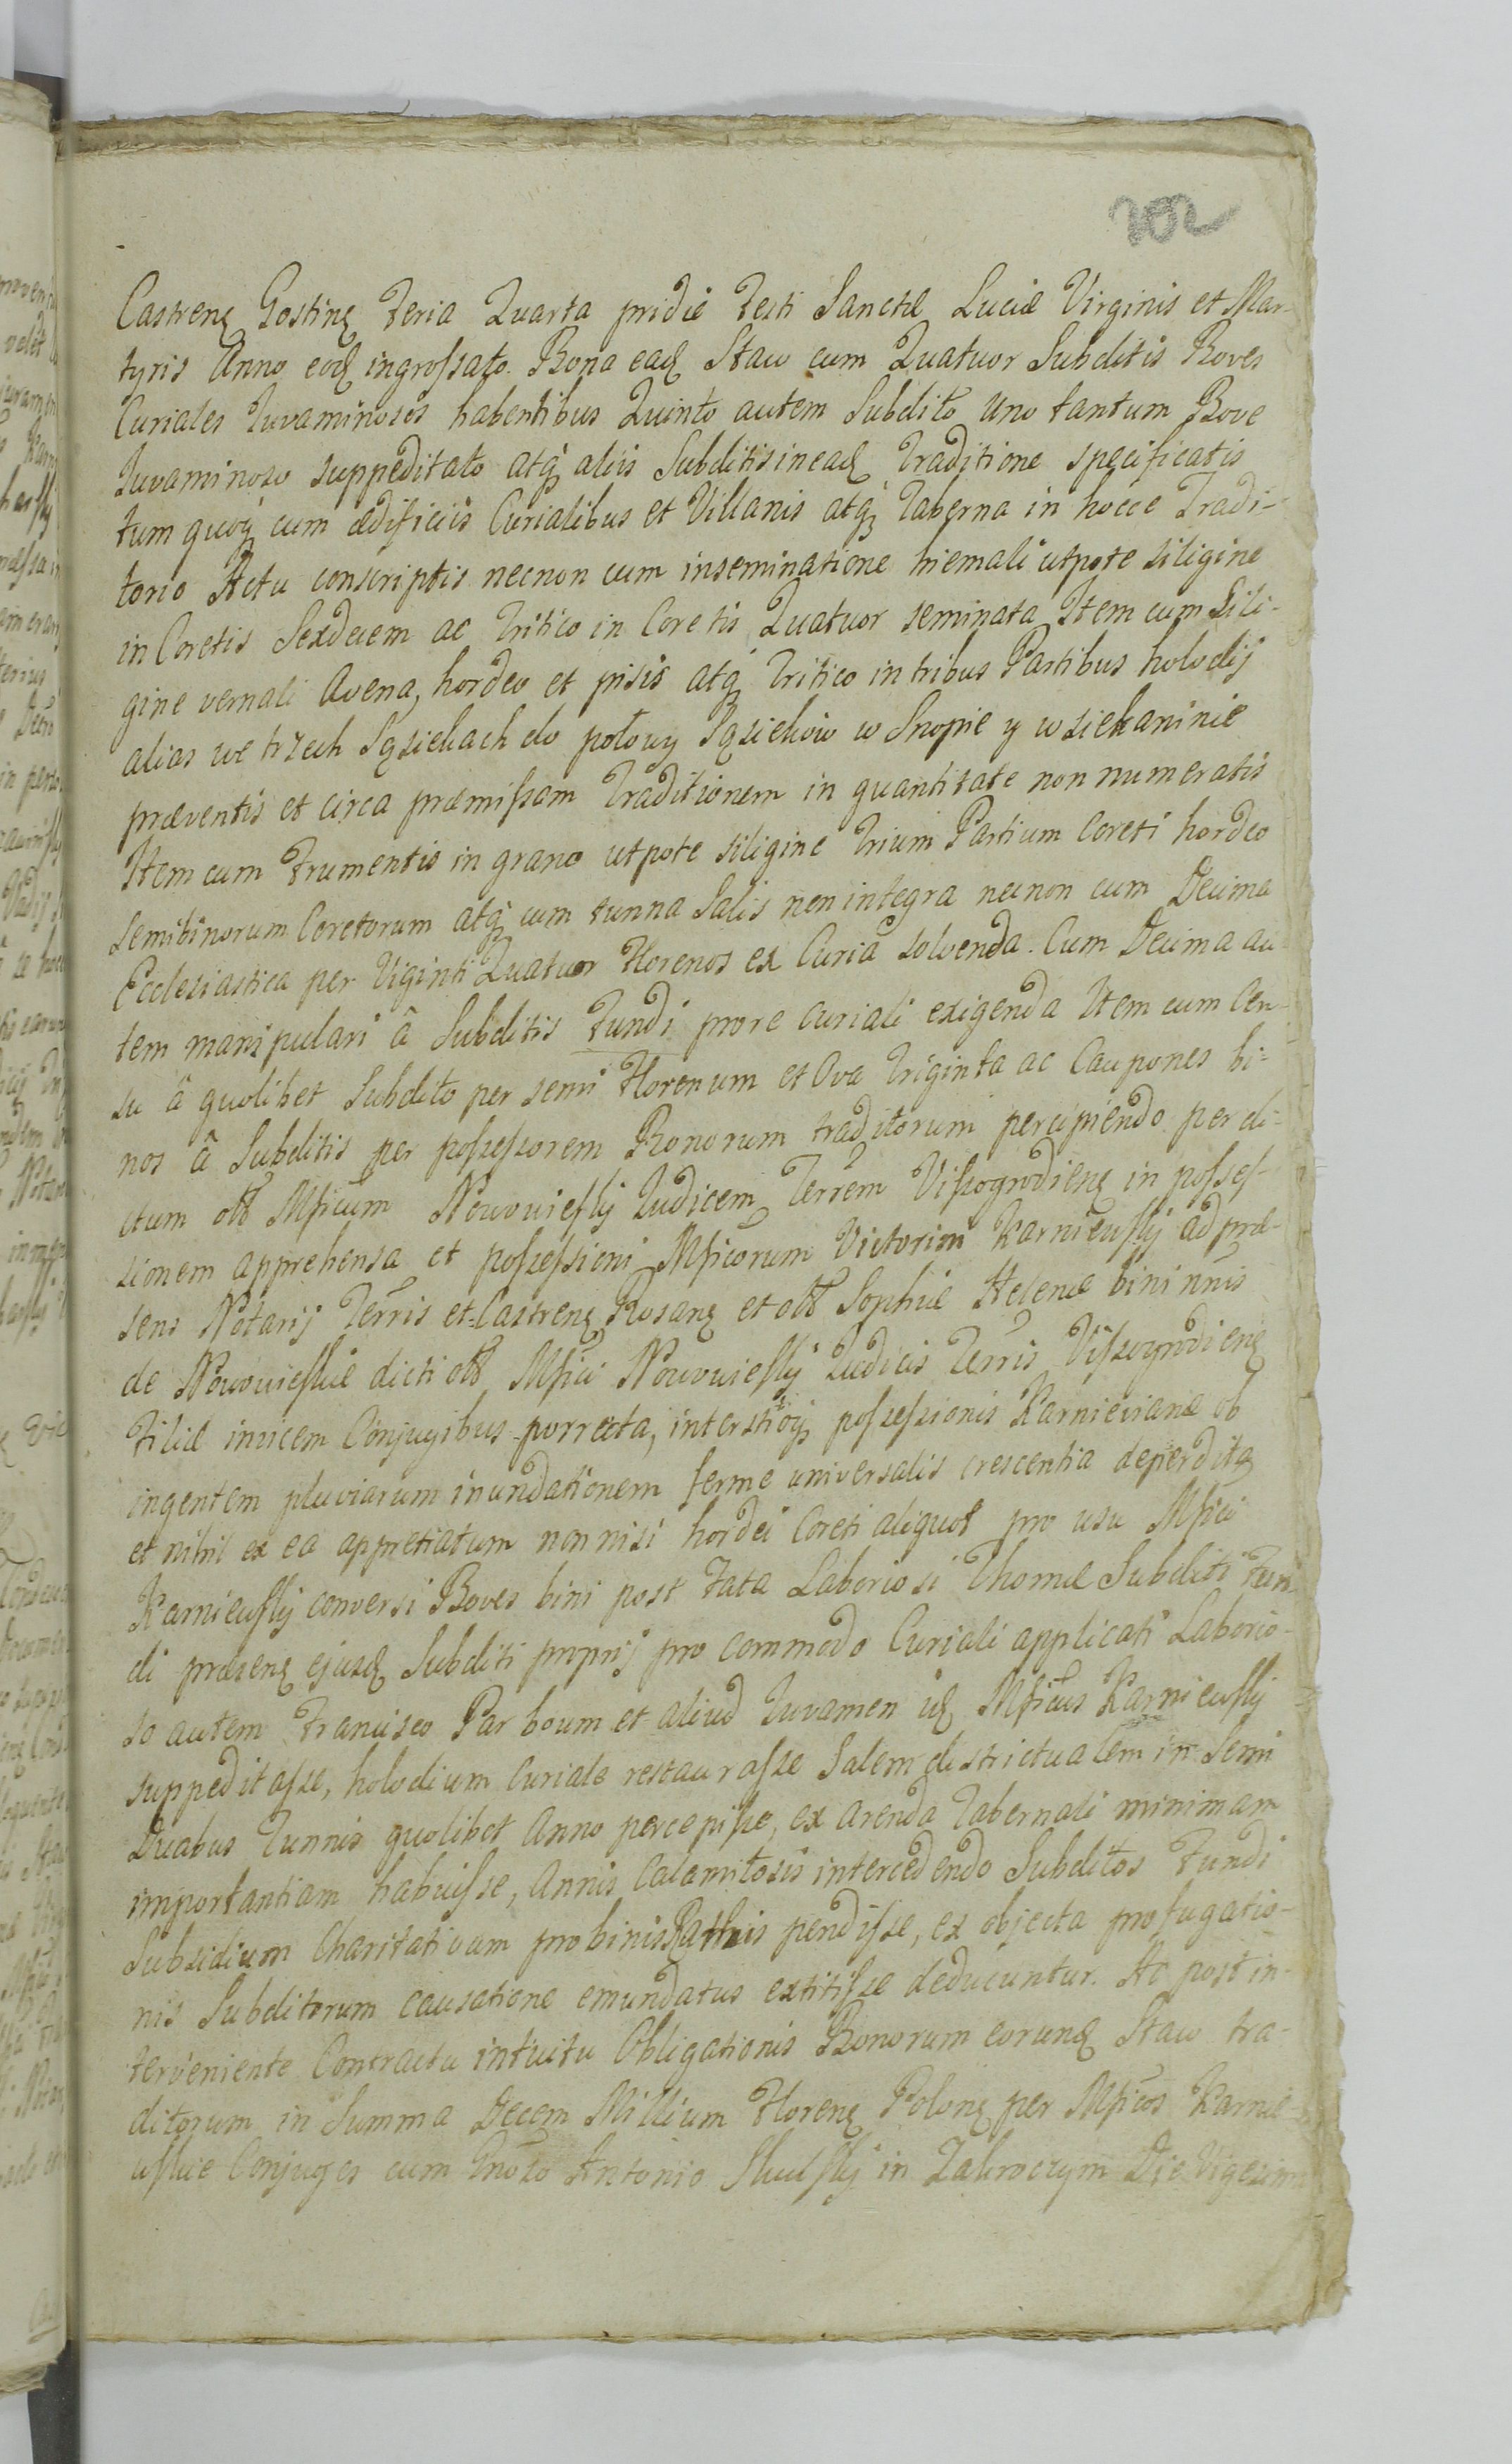 202
Castrenꝫ Gostinꝫ Feria Quarta pridie Festi Sanctæ Luciæ Virginis et Mar-
tyris Anno eodꝫ ingrossato. Bona eadꝫ Staw cum Quatuor Subditis Boves
Curiales Juvaminosos habentibus Quinto autem Subdito uno tantum Bove
Juvaminoso suppeditato atqꝫ aliis Subditis in eadꝫ Traditione specificatis
tum quoqꝫ cum ædificiis Curialibus et Villanis atqꝫ Taberna in hocce Tradi-
torio Actu conscriptis necnon cum inseminatione hiemali utpote siligine
in Coretis Sexdecem ac Tritico in Coretis Quatuor seminata Item cum Sili-
gine vernali Avena, hordeo et pisis atqꝫ Tritico in tribus Partibus holodij
alias we trzech Sąsiekach do połowy Sąsieków w Snopie y w siekaninie
præventis et circa præmissam Traditionem in quantitate non numeratis
Item cum Frumentis in grano utpote siligine Trium Partium Coreti hordeo
semibinorum Coretorum atqꝫ cum tunna Salis non integra necnon cum Decima
Ecclesiastica per Viginti Quatuor Florenos ex Curia solvenda. Cum Decima au-
tem manipulari â Subditis Fundi pro re Curiali exigenda Item cum Cen-
su â quolibet Subdito per semi Florenum et Ova Triginta ac Caupones bi-
nos â Subditis per possessorem Bonorum traditorum percipiendo per di-
ctum olt Mficum Nowowieski Judicem Terrem Vissogrodienꝫ in posses-
sionem apprehensa et possessioni Mficorum Victorini Karnieuski ad præ-
sens Notarij Terris et Castrenꝫ Rosanꝫ et olt Sophiæ Helenæ bini nnis
de Nowowieskie dicti olt Mfici Nowowieski Judicis Terris Vissogrodienꝫ
Filiæ invicem Conjugibus porrecta, interstitioqꝫ possessionis Karnievianæ ob
ingentem pluviarum inundationem ferme universalis crescentia deperditꝫ
et nihil ex ea appretiatum non nisi hordei Coreti aliquot pro usu Mfici
Karnieuski conversi Boves bini post Fata Laboriosi Thomæ Subditi Fun-
di præsenꝫ ejusdꝫ Subditi proprij pro commodo Curiali applicati Laborio-
so autem Francisco Par boum et aliud Juvamen idꝫ Mficus Karnieuski
suppeditasse, holodium Curiale restaurasse Salem districtualem in Semi
Duabus Tunnis quolibet Anno percepisse, ex Arenda Tabernali minimam
importantiam habuisse, Annis Calamitosis intercedendo Subditos Fundi
Subsidium Charitativum pro binis Rathis pendisse, ex objecta profugatio-
nis Subditorum causatione emundatus extitisse deducuntur. Ac post in-
terveniente Contractu intuitu Obligationis Bonorum eorundꝫ Staw tra-
ditorum in Summa Decem Millium Florenꝫ Polonꝫ per Mficos Karnie-
uskie Conjuges cum Gnoso Antonio in Zakroczym Die Vigesima